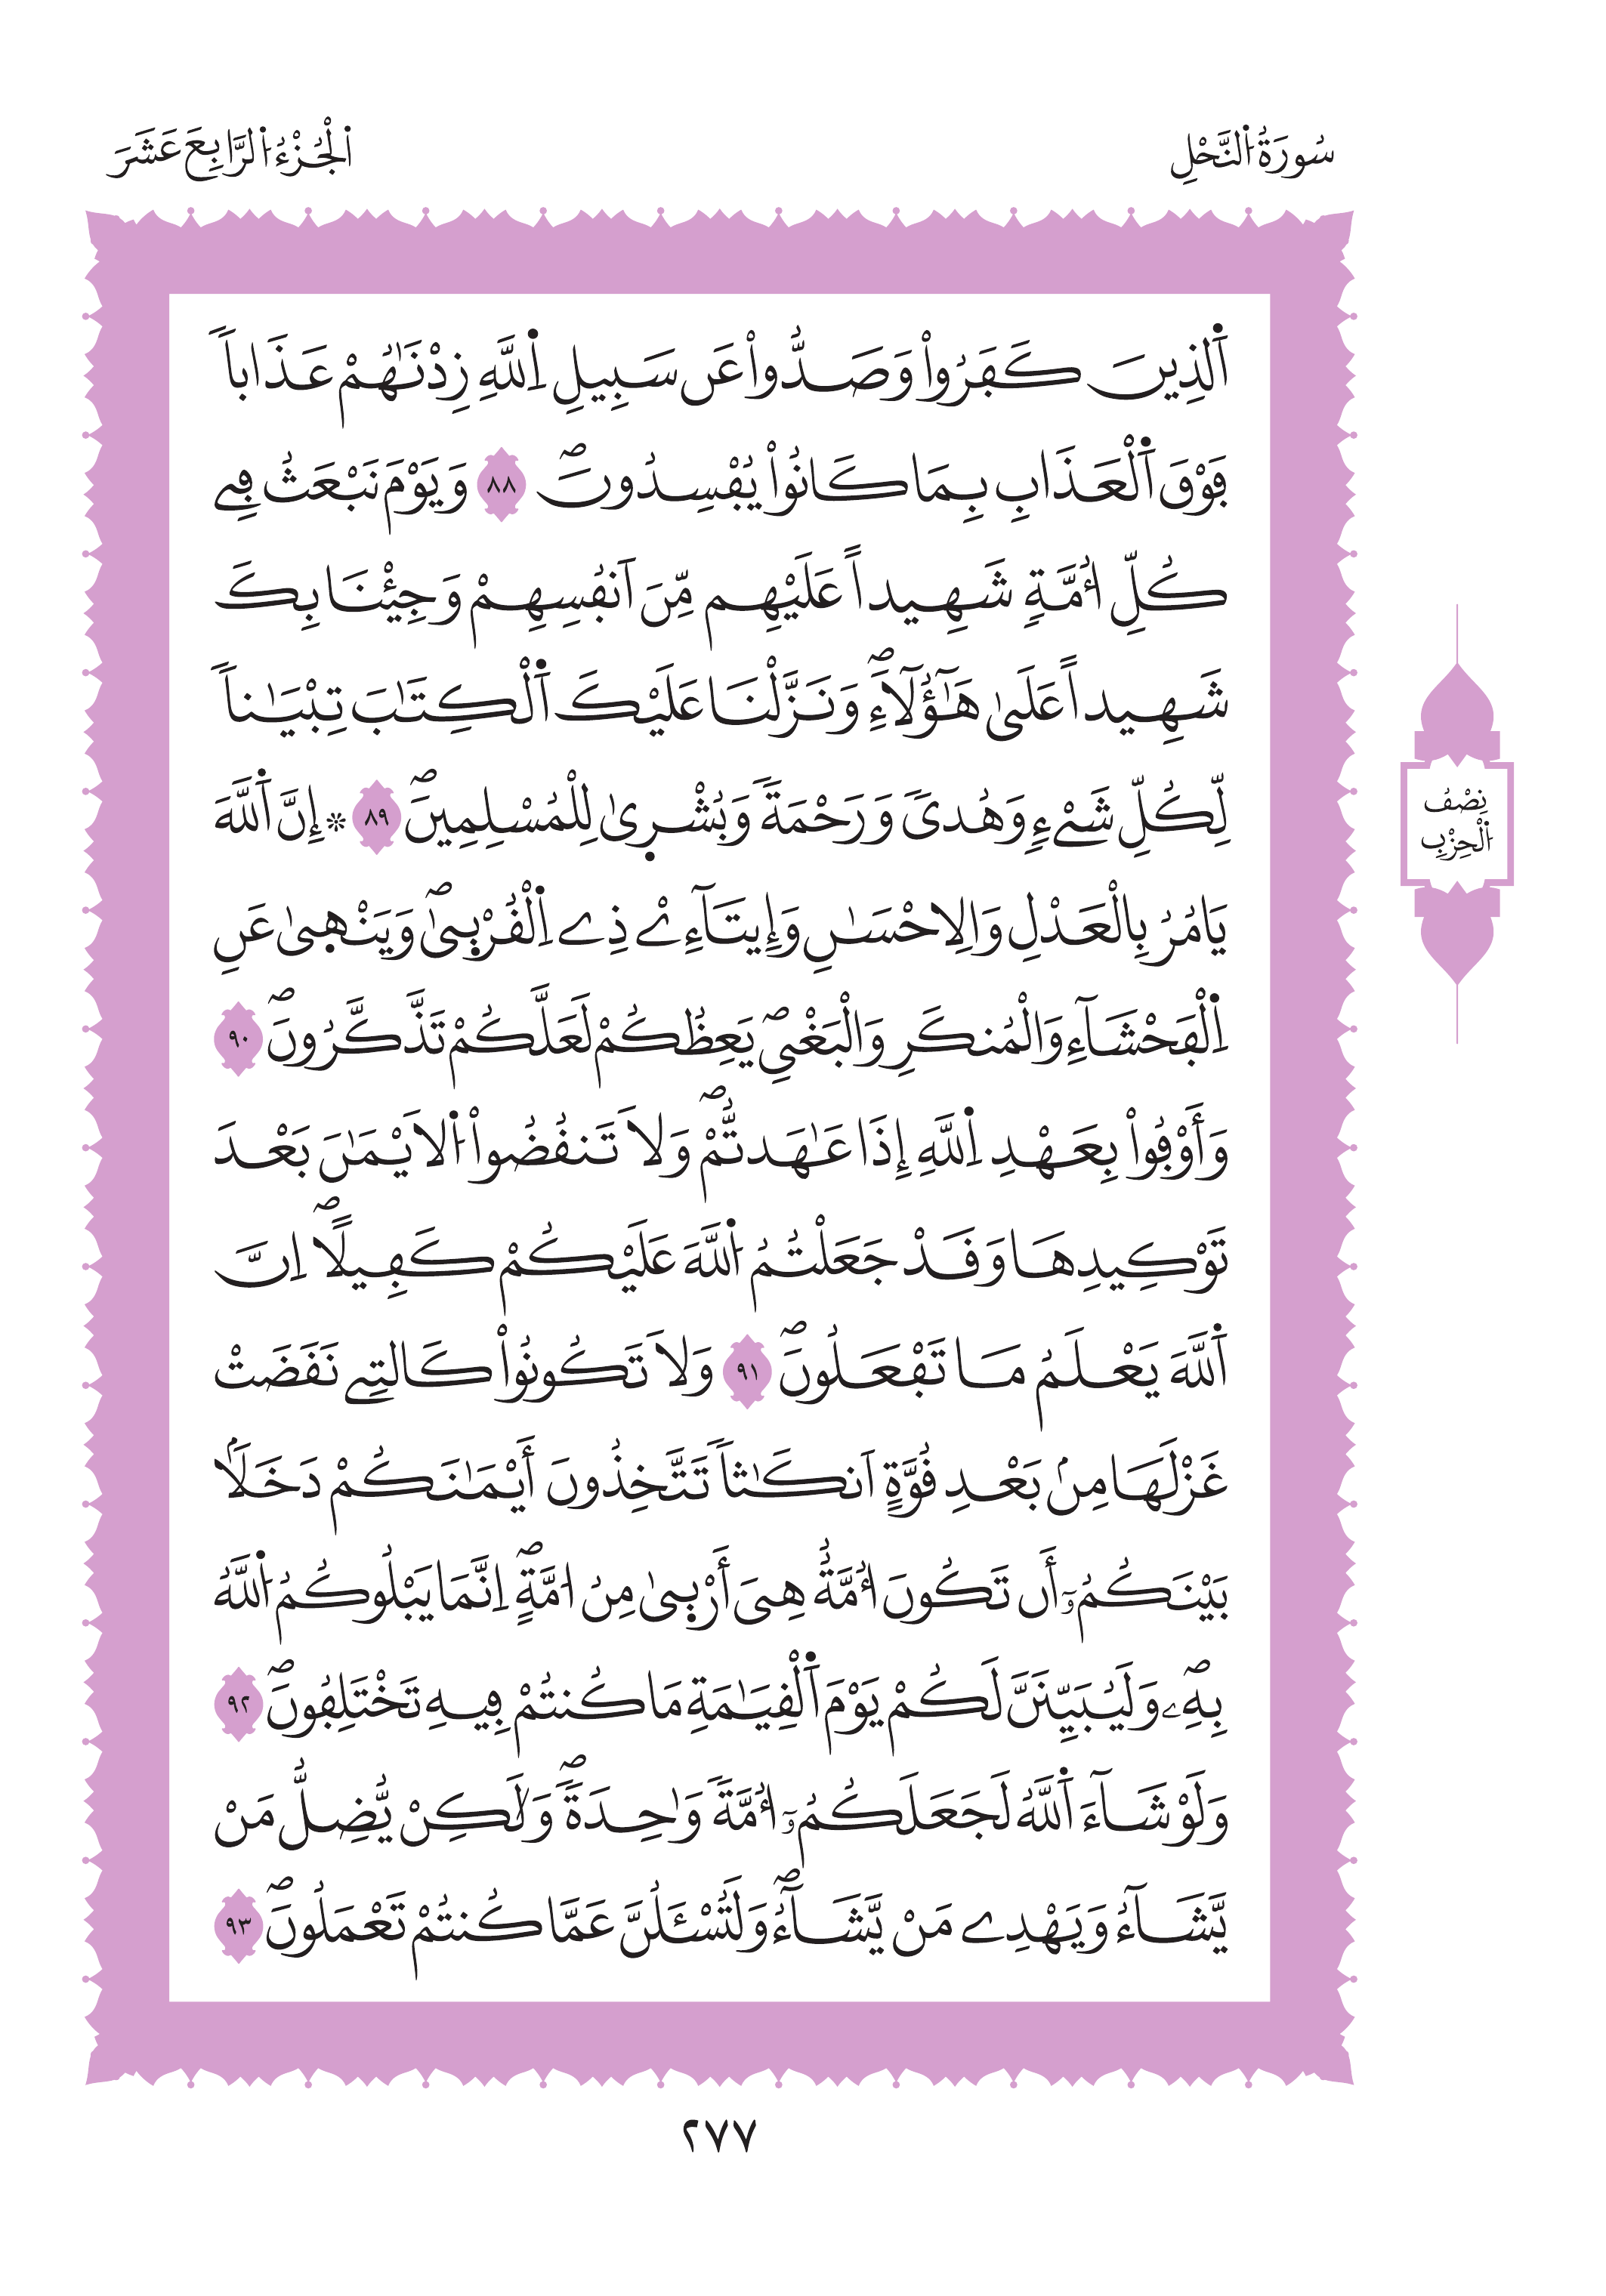 سُورَةُ النَّحْلِ
الْجُزْءُ الرَّابِعَ عَشَرَ
اَ۬لذِينَ كَفَرُواْ وَصَدُّواْ عَن سَبِيلِ اِ۬للَّهِ زِدْنَٰهُمْ عَذَاباٗ
فَوْقَ اَ۬لْعَذَابِ بِمَا كَانُواْ يُفْسِدُونَۖ ٨٨ وَيَوْمَ نَبْعَثُ فِے
كُلِّ أُمَّةٖ شَهِيداً عَلَيْهِم مِّنَ اَنفُسِهِمْ وَجِئْنَا بِكَ
شَهِيداً عَلَىٰ هَٰٓؤُلَآءِۖ وَنَزَّلْنَا عَلَيْكَ اَ۬لْكِتَٰبَ تِبْيَٰناٗ
لِّكُلِّ شَےْءٖ وَهُدىٗ وَرَحْمَةٗ وَبُشْر۪ىٰ لِلْمُسْلِمِينَۖ ٨٩ ۞ إِنَّ اَ۬للَّهَ
يَامُرُ بِالْعَدْلِ وَالِاحْسَٰنِ وَإِيتَآءِےْ ذِے اِ۬لْقُرْب۪ىٰۖ وَيَنْه۪ىٰ عَنِ
اِ۬لْفَحْشَآءِ وَالْمُنكَرِ وَالْبَغْيِۖ يَعِظُكُمْ لَعَلَّكُمْ تَذَّكَّرُونَۖ ٩٠
وَأَوْفُواْ بِعَهْدِ اِ۬للَّهِ إِذَا عَٰهَدتُّمْۖ وَلَا تَنقُضُواْ اُ۬لَايْمَٰنَ بَعْدَ
تَوْكِيدِهَا وَقَدْ جَعَلْتُمُ اُ۬للَّهَ عَلَيْكُمْ كَفِيلًاۖ اِنَّ
اَ۬للَّهَ يَعْلَمُ مَا تَفْعَلُونَۖ ٩١ وَلَا تَكُونُواْ كَالتِے نَقَضَتْ
غَزْلَهَا مِنۢ بَعْدِ قُوَّةٍ اَنكَٰثاٗ تَتَّخِذُونَ أَيْمَٰنَكُمْ دَخَلَۢا
بَيْنَكُمُۥٓ أَن تَكُونَ أُمَّةٌ هِيَ أَرْب۪ىٰ مِنُ امَّةٍۖ اِنَّمَا يَبْلُوكُمُ اُ۬للَّهُ
بِهِۦۖ وَلَيُبَيِّنَنَّ لَكُمْ يَوْمَ اَ۬لْقِيَٰمَةِ مَا كُنتُمْ فِيهِ تَخْتَلِفُونَۖ ٩٢
وَلَوْ شَآءَ اَ۬للَّهُ لَجَعَلَكُمُۥٓ أُمَّةٗ وَٰحِدَةٗۖ وَلَٰكِنْ يُّضِلُّ مَنْ
يَّشَآءُ وَيَهْدِے مَنْ يَّشَآءُۖ وَلَتُسْـَٔلُنَّ عَمَّا كُنتُمْ تَعْمَلُونَۖ ٩٣
نِصْفُ
الْحِزْبِ
٢٧٧